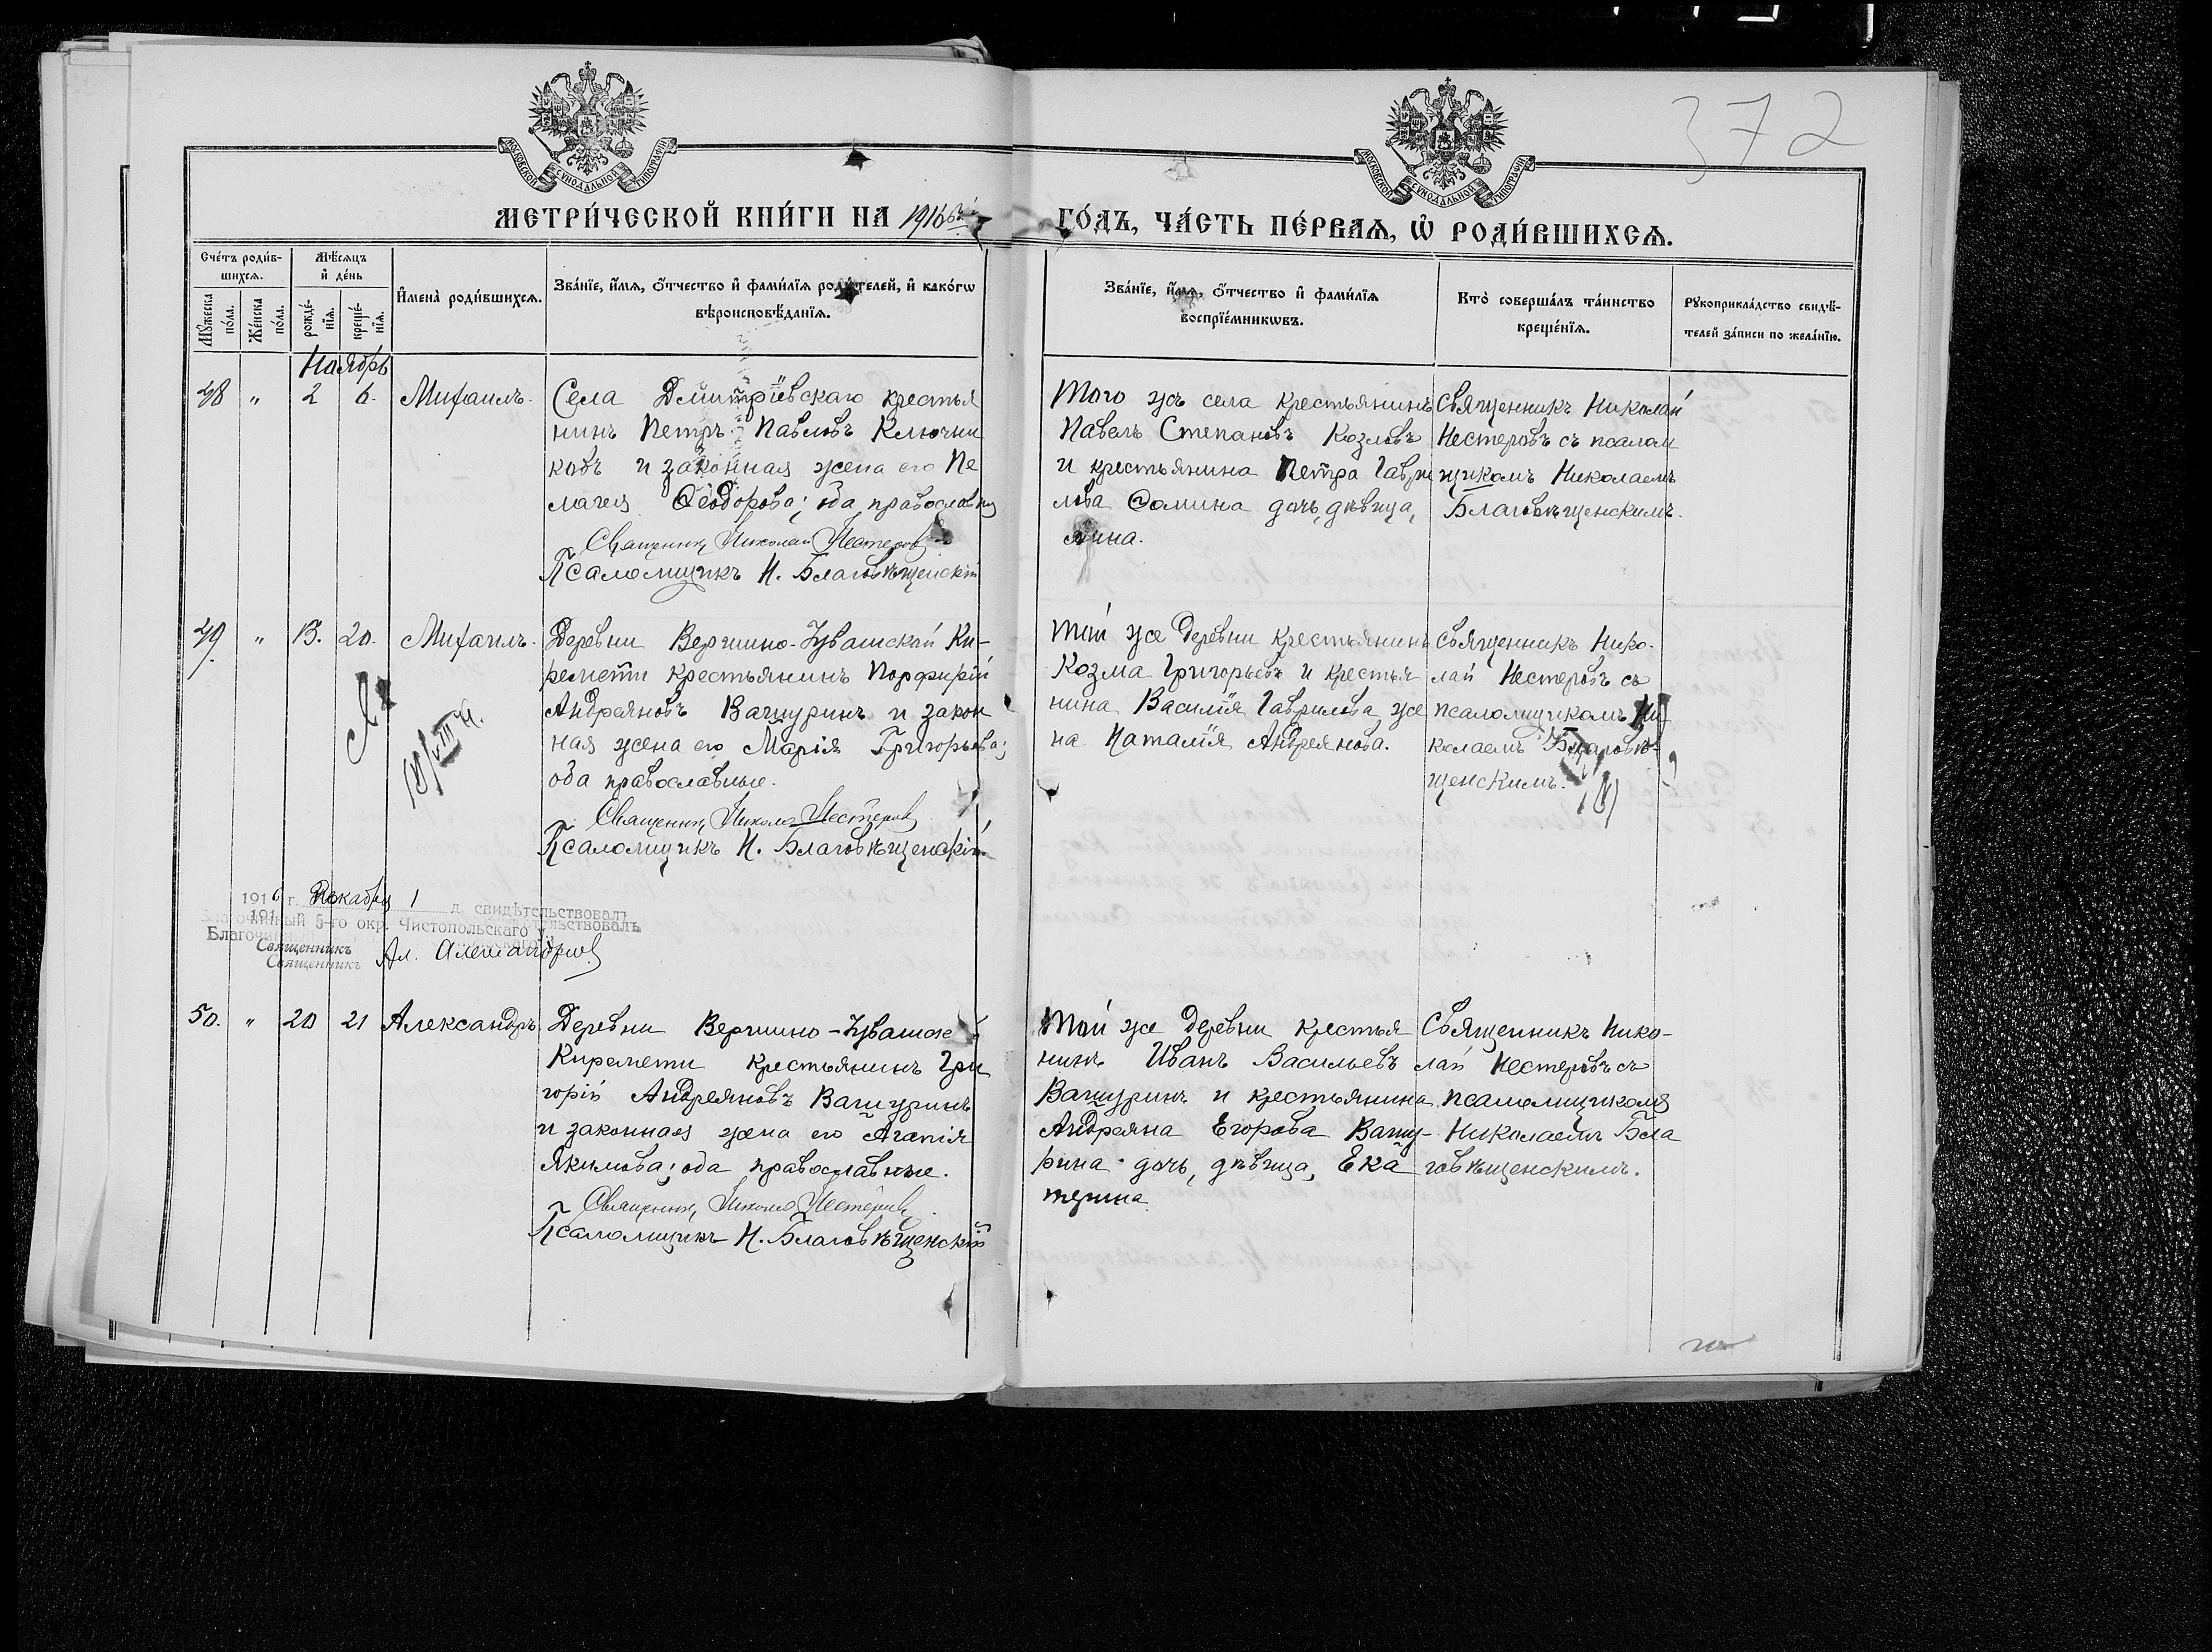 372
МОСКОВСКОЙ СѴНОДАЛЬНОЙ ТИПОГРАФІИ
МОСКОВСКОЙ СѴНОДАЛЬНОЙ ТИПОГРАФІИ
МЕТРИ́ЧЕСКОЙ КНИ́ГИ НА 1916й
ГО́ДЪ, ЧА́СТЬ ПЕ́РВАЯ, Ѽ РОДИ́ВШИХСѦ.
Сче́тъ роди́в-
шихсѧ.
Мꙋ́жеска по́ла.
Же́нска по́ла.
Мѣ́сѧцъ и҆ де́нь
рожде́-
нїѧ.
креще́-
нїѧ.
И҆мена̀ роди́вшихсѧ.
Зва́нїе, и҆́мѧ, ѻ҆́тчество и҆ фами́лїѧ роди́телей, и҆ како́гѡ
вѣроисповѣ́данїѧ.
Зва́нїе, и҆́мѧ, ѻ҆́тчество и҆ фами́лїѧ
воспрїе́мникѡвъ.
Кто̀ соверша́лъ та́инство
креще́нїѧ.
Рꙋкоприкла́дство свидѣ́-
телей за́писи по жела́нїю.
Ноябрь
48 " 2 6. Михаилъ.
Села Дмитріевскаго крестья
нинъ Петръ Павловъ Ключни
ковъ и законная жена его Пе
лагея Ѳеодорова; оба православны
Священникъ Николай Нестеровъ
Псаломщикъ Н. Благовѣщенскій
Того же села крестьянинъ
Павелъ Степановъ Козловъ
и крестьянина Петра Гаври
лова Ѳомина дочь, дѣвица,
Анна.
Священникъ Николай
Нестеровъ съ псалом
щикомъ Николаемъ
Благовѣщенскимъ.
49. " 13. 20. Михаилъ.
Деревни Вершино-Чувашской Ки-
ремети крестьянинъ Порфирій
Андреяновъ Вашуринъ и закон
ная жена его Марія Григорьева;
оба православные.
Священникъ Николай Нестеровъ
Псаломщикъ Н. Благовѣщенскій.
Той же деревни крестьянинъ
Козма Григорьевъ и крестья
нина Василія Гаврилова же
на Наталія Андреянова.
Священникъ Нико-
лай Нестеровъ съ
псаломщикомъ Ни-
колаемъ Благовѣ-
щенскимъ.
1916 г. Декабря 1 д. свидѣтельствовалъ
Благочинный 5-го окр. Чистопольскаго
Священникъ Ал. Александровъ
50. " 20 21 Александръ.
Деревни Вершино-Чувашской
Киремети крестьянинъ Гри
горій Андреяновъ Вашуринъ
и законная жена его Агапія
Якимова; оба православные.
Священникъ Николай Нестеровъ
Псаломщикъ Н. Благовѣщенскій
Той же деревни крестья
нинъ Иванъ Васильевъ
Вашуринъ и крестьянина
Андреяна Егорова Вашу-
рина дочь, дѣвица, Ека
терина
Священникъ Нико-
лай Нестеровъ съ
псаломщикомъ
Николаемъ Бла
говѣщенскимъ.